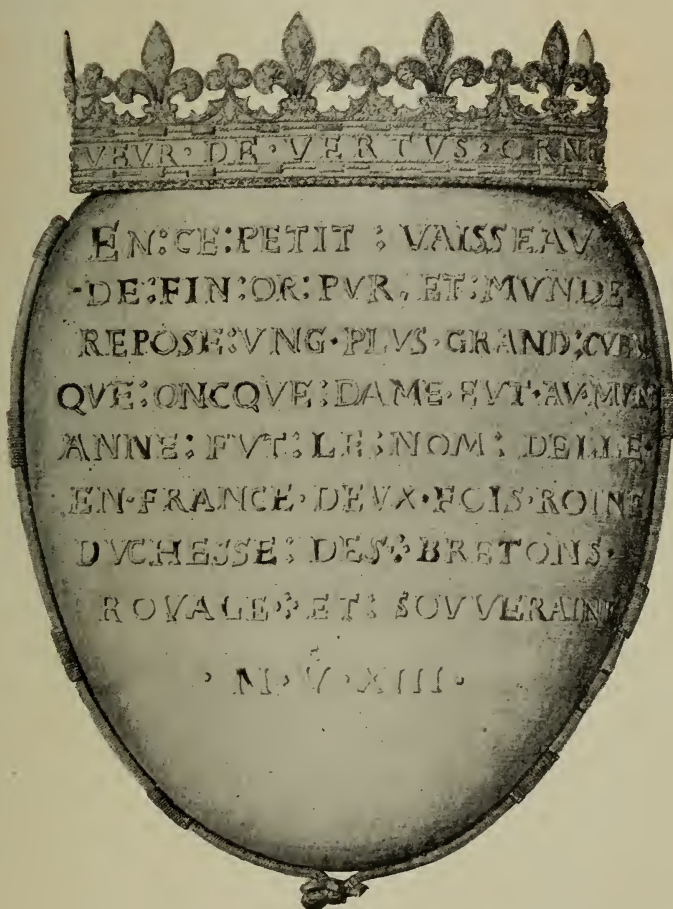 VEVR · DE · VERTVS · ORNE
EN : CE : PETIT : VAISSEAV
· DE : FIN : OR : PVR . ET : MVNDE
REPOSE : VNG · PLVS · GRAND : CVE
QVE : ONCQVE : DAME · EVT · AV · MVN
ANNE : FVT : LE : NOM : DELLE ·
EN · FRANCE · DEVX · FOIS · ROINE
DVCHESSE : DES : BRETONS ·
ROYALE : ET : SOVVERAINE
· M · Vᶜ · XIII ·